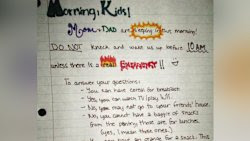 Morning, Kids!
Mom + DAD are sleeping in this morning!
DO NOT knock and wake us up before 10 AM
unless there is a real EMERGENCY!!
To answer your questions:
- You can have cereal for breakfast
- Yes, you can watch TV / play
- No, you may not go to your friends' house.
- No, you cannot have a baggie of snacks
from the pantry those are for lunches.
(yes, I mean these ones.)
have an orange for a snack. This